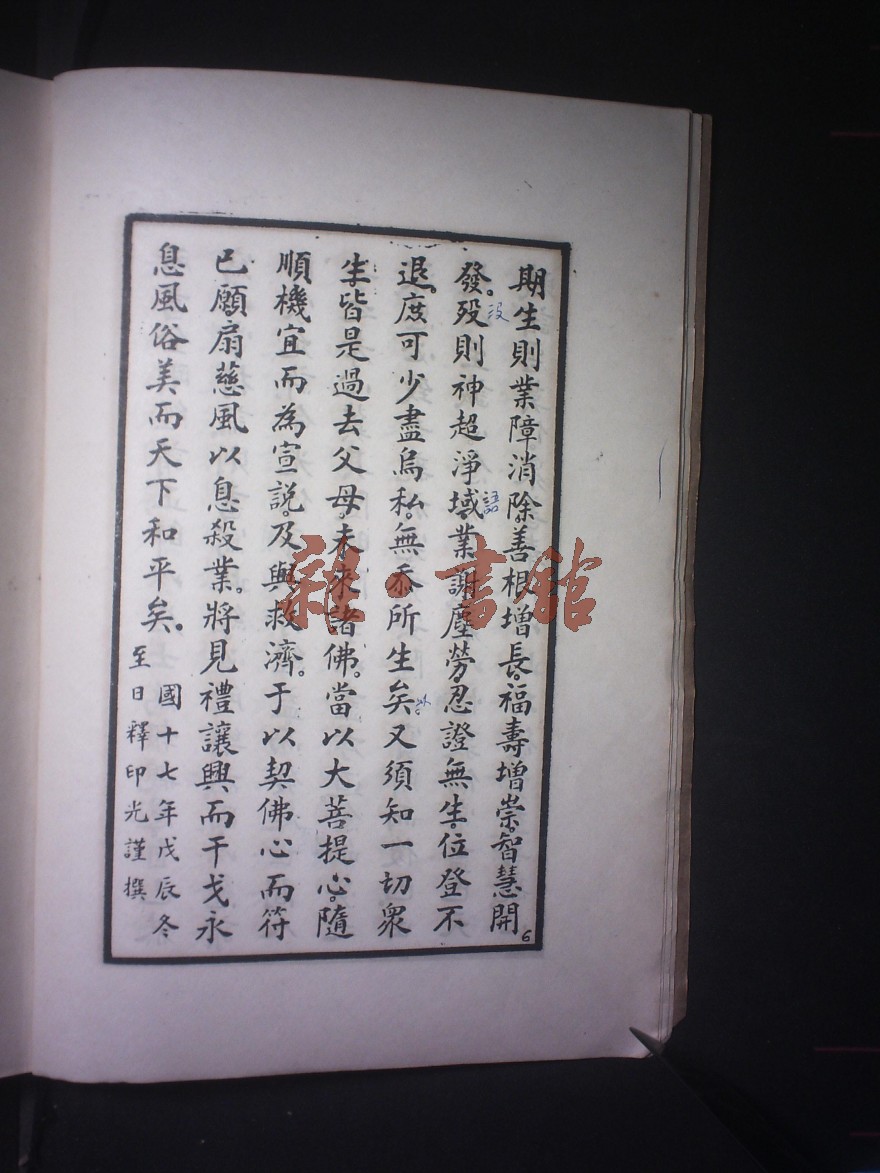 期生則業障消除。善根增長。福壽增崇。智慧開
發。歿則神超淨域。業謝塵勞。忍證無生。位登不
退。庶可少盡烏私。無忝所生矣。又須知一切眾
生。皆是過去父母。未來諸佛。當以大菩提心。隨
順機宜而為宣說。及與救濟。于以契佛心而符
己願。扇慈風以息殺業。將見禮讓興而干戈永
息。風俗美而天下和平矣。
國十七年戊辰冬
至日釋印光謹撰
6
没
雜·書館